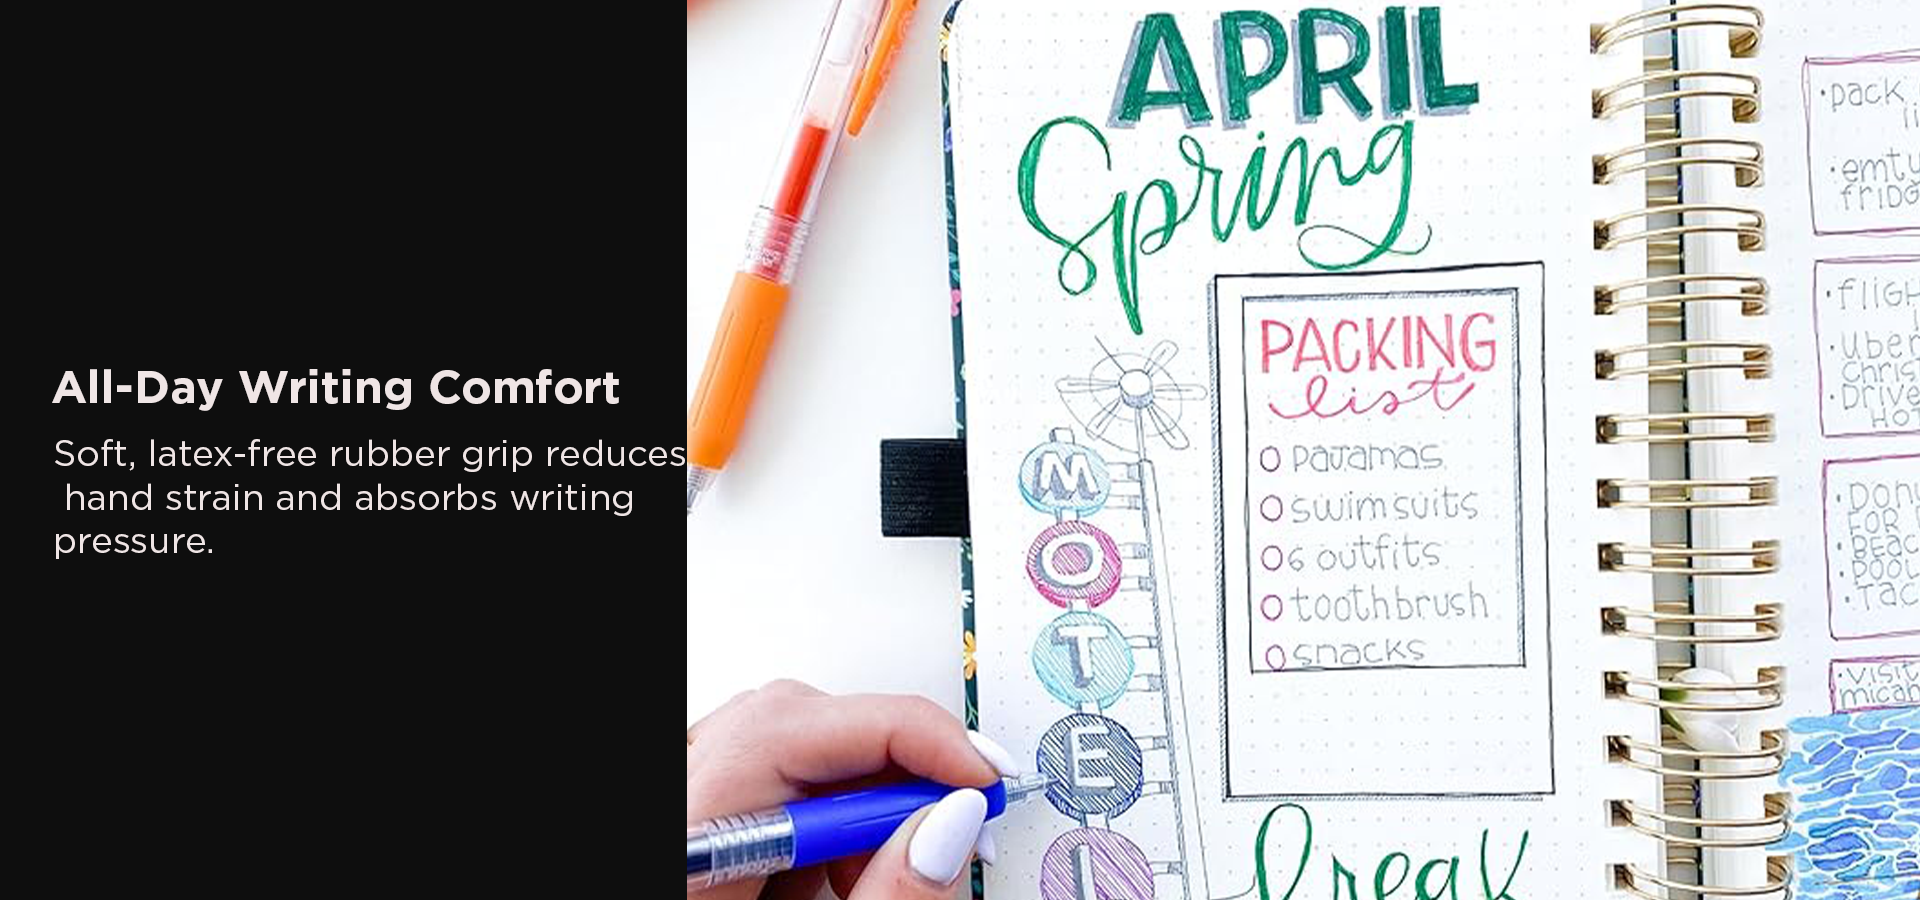 All-Day Writing Comfort
Soft, latex-free rubber grip reduces
hand strain and absorbs writing
pressure.
APRIL
Spring
PACKING
list
pajamas
swimsuits
6 outfits
toothbrush
snacks
MOTEL
break
pack
emty
fridg
fligh
uber
chris
Drive
Ho
Donu
FOR
BEAC
POOL
TAC
visit
micah